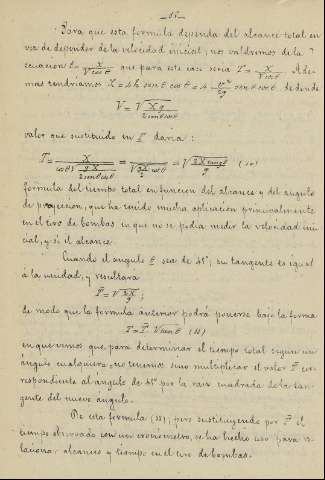 -15-
Para que esta formula dependa del alcance total en
vez de depender de la velocidad inicial, nos valdremos de la
ecuacion t = x / V cos θ que para este caso seria T = X / V cos θ. Ade-
mas tendriamos X = 4h sen θ cos θ = 4 v² / 2g sen θ cos θ de donde
V = √ X g / 2 sen θ cos θ
valor que sustituido en T daria:
T = X / cos θ √ g X / 2 sen θ cos θ = X / √ g X / 2 cot θ = √ 2X tang θ / g (10)
formula del tiempo total en funcion del alcance y del angulo
de proyeccion, que ha tenido mucha aplicacion principalmente
en el tiro de bombas en que no se podia medir la velocidad ini-
cial, y si el alcance.
Cuando el angulo θ sea de 45°, su tangente es igual
á la unidad, y resultara
T' = √ 2X / g ;
de modo que la formula anterior podrá ponerse bajo la forma
T = T' √ tang θ (11)
en que vemos que para determinar el tiempo total segun un
ángulo cualquiera, no tenemos sino multiplicar el valor T' cor-
respondiente al angulo de 45° por la raiz cuadrada de la tan-
gente del nuevo angulo.
De esta formula (11), pero sustituyendo por T' el
tiempo observado con un cronómetro, se ha hecho uso para re-
lacionar alcances y tiempos en el tiro de bombas.